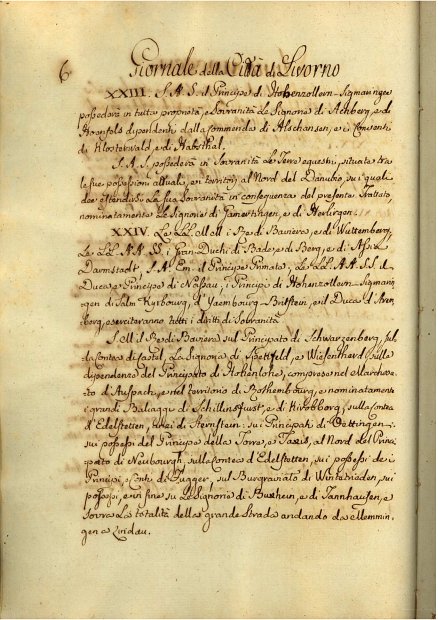 6 Giornale della Città di Livorno
XXIII. S. A. S. il Principe di Hohenzollern-Sigmaringen
possederà in tutta proprietà, e Sovranità Le Signorie di Achberg, e di
Hoonfels dipendenti dalla Commenda di Alschansen, e i Conventi
di Klosterwald, e di Habsthal.
S. A. S. possederà in Sovranità Le Terre equestri, situate tra
le sue possessioni attuali, e i territorj al Nord del Danubio, su i quali
dee estendersi La sua Sovranità in conseguenza del presente Trattato
nominatamente Le Signorie di Gamertingen, e di Herlingen.
XXIV. Le LL. MM. i Re di Baviera, e di Wurtemberg,
Le LL. AA. SS. i Gran-Duchi di Bade, e di Berg, e di Assia
Darmstadt, S. A. Em. il Principe Primate, Le LL. AA. SS. il
Duca, e Principe di Nassau, i Principi di Hohenzollern-Sigmarin-
gen di Salm Kyrbourg, d'Ysembourg-Birstein, e il Duca d'Arem-
berg, eserciteranno tutti i diritti di Sovranità
S. M. il Re di Baviera sul Principato di Schwarzenberg, sul-
la Contea di Castel, La Signoria di Spettfeld, e Wiesentherd, sulle
dipendenze del Principato di Hohenlohe, comprese nel Marchesa-
to d'Auspach, e nel territorio di Rothembourg, e nominatamente
i grandi Baliaggi di Schillinsfurst, e di Kirchborg, sulla Contea
d'Edelstetten, di Sternstein: su i Principati di Oettingen:
sui possessi del Principe della Torre, e Taxis, al Nord del Princi-
pato di Neubourgh, sulla Contea d'Edelstetten, sui possessi dei
Principi, e Conti di Fugger, sul Burgraviato di Winterieden, sui
possessi, e in fine su Le Signorie di Buxhein, e di Tannhausen, e
Sovra La totalità della grande Strada andando da Memmin-
gen a Lindau.